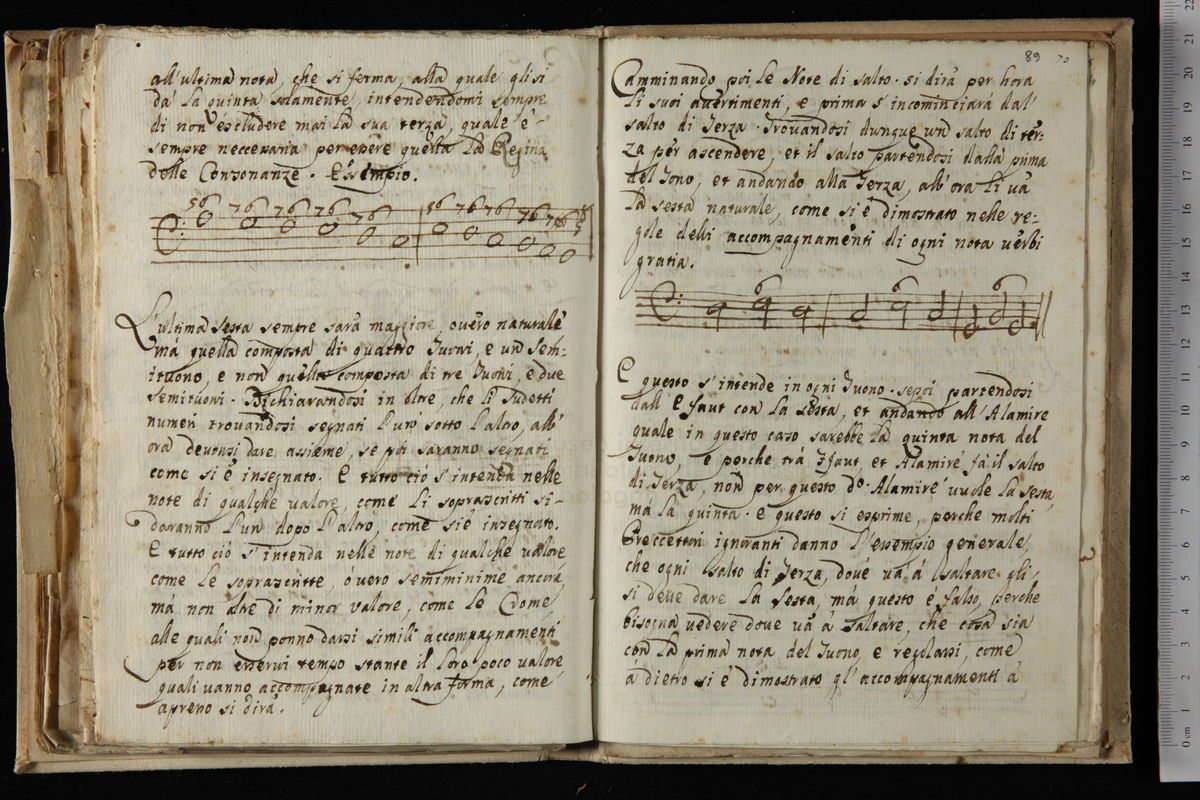 all'ultima nota, che si ferma, alla quale gli si
dà la quinta solamente, intendendomi sempre
di non escludere mai la sua terza, quale è
sempre neccessaria per essere quella la Regina
delle Consonanze. Essempio.
56 76 76 76 76 56 76 76 76
L'ultima sesta sempre sarà maggiore, overo naturale
mà quella composta di quattro Tuoni, e un sem:
ituono, e non quella composta di tre Tuoni, e due
semituoni. Dichiarandosi in oltre, che li sudetti
numeri trovandosi segnati l'uno sotto l'altro, all'
ora devonsi dare assieme, se poi saranno segnati
come si è insegnato. E tutto ciò s'intenda nelle
note di qualche valore, come li soprascritti si
daranno l'uno dopo l'altro, come si è insegnato.
E tutto ciò s'intenda nelle note di qualche valore,
come le soprascritte, overo semiminime ancora,
mà non altre di minor valore, come le Crome,
alle quali non ponno darsi simili accompagnamenti
per non esservi tempo stante il loro poco valore
quali vanno accompagnate in altra forma, come
apresso si dirà.
89 70
Camminando poi le Note di salto. si dirà per hora
li suoi avertimenti, e prima s'incominciarà dal'
salto di Terza. Trovandosi dunque un salto di ter:
za per ascendere, et il salto partendosi dalla prima
del Tono, et andando alla Terza, all'ora li và
la sesta naturale, come si è dimostrato nelle re:
gole delli accompagnamenti di ogni nota verbi
gratia.
6 6 6
E questo s'intende in ogni Tuono. partendosi
dall' faut con la sesta, et andando all'Alamire
quale in questo caso sarebbe la quinta nota del
Tuono, e perche trà Ffaut, et Alamire, fà il salto
di Terza, non per questo do. Alamire vuole la sesta,
mà la quinta. e questo si esprime, perche molti
Preccettori ignoranti danno l'essempio generale,
che ogni salto di Terza, dove và à saltare gli
si deve dare la sesta, mà questo è falso, perche
bisogna vedere dove và à saltare, che cosa sia
con la prima nota del Tuono, e regolarsi, come
à dietro si è dimostrato gl'accompagnamenti à